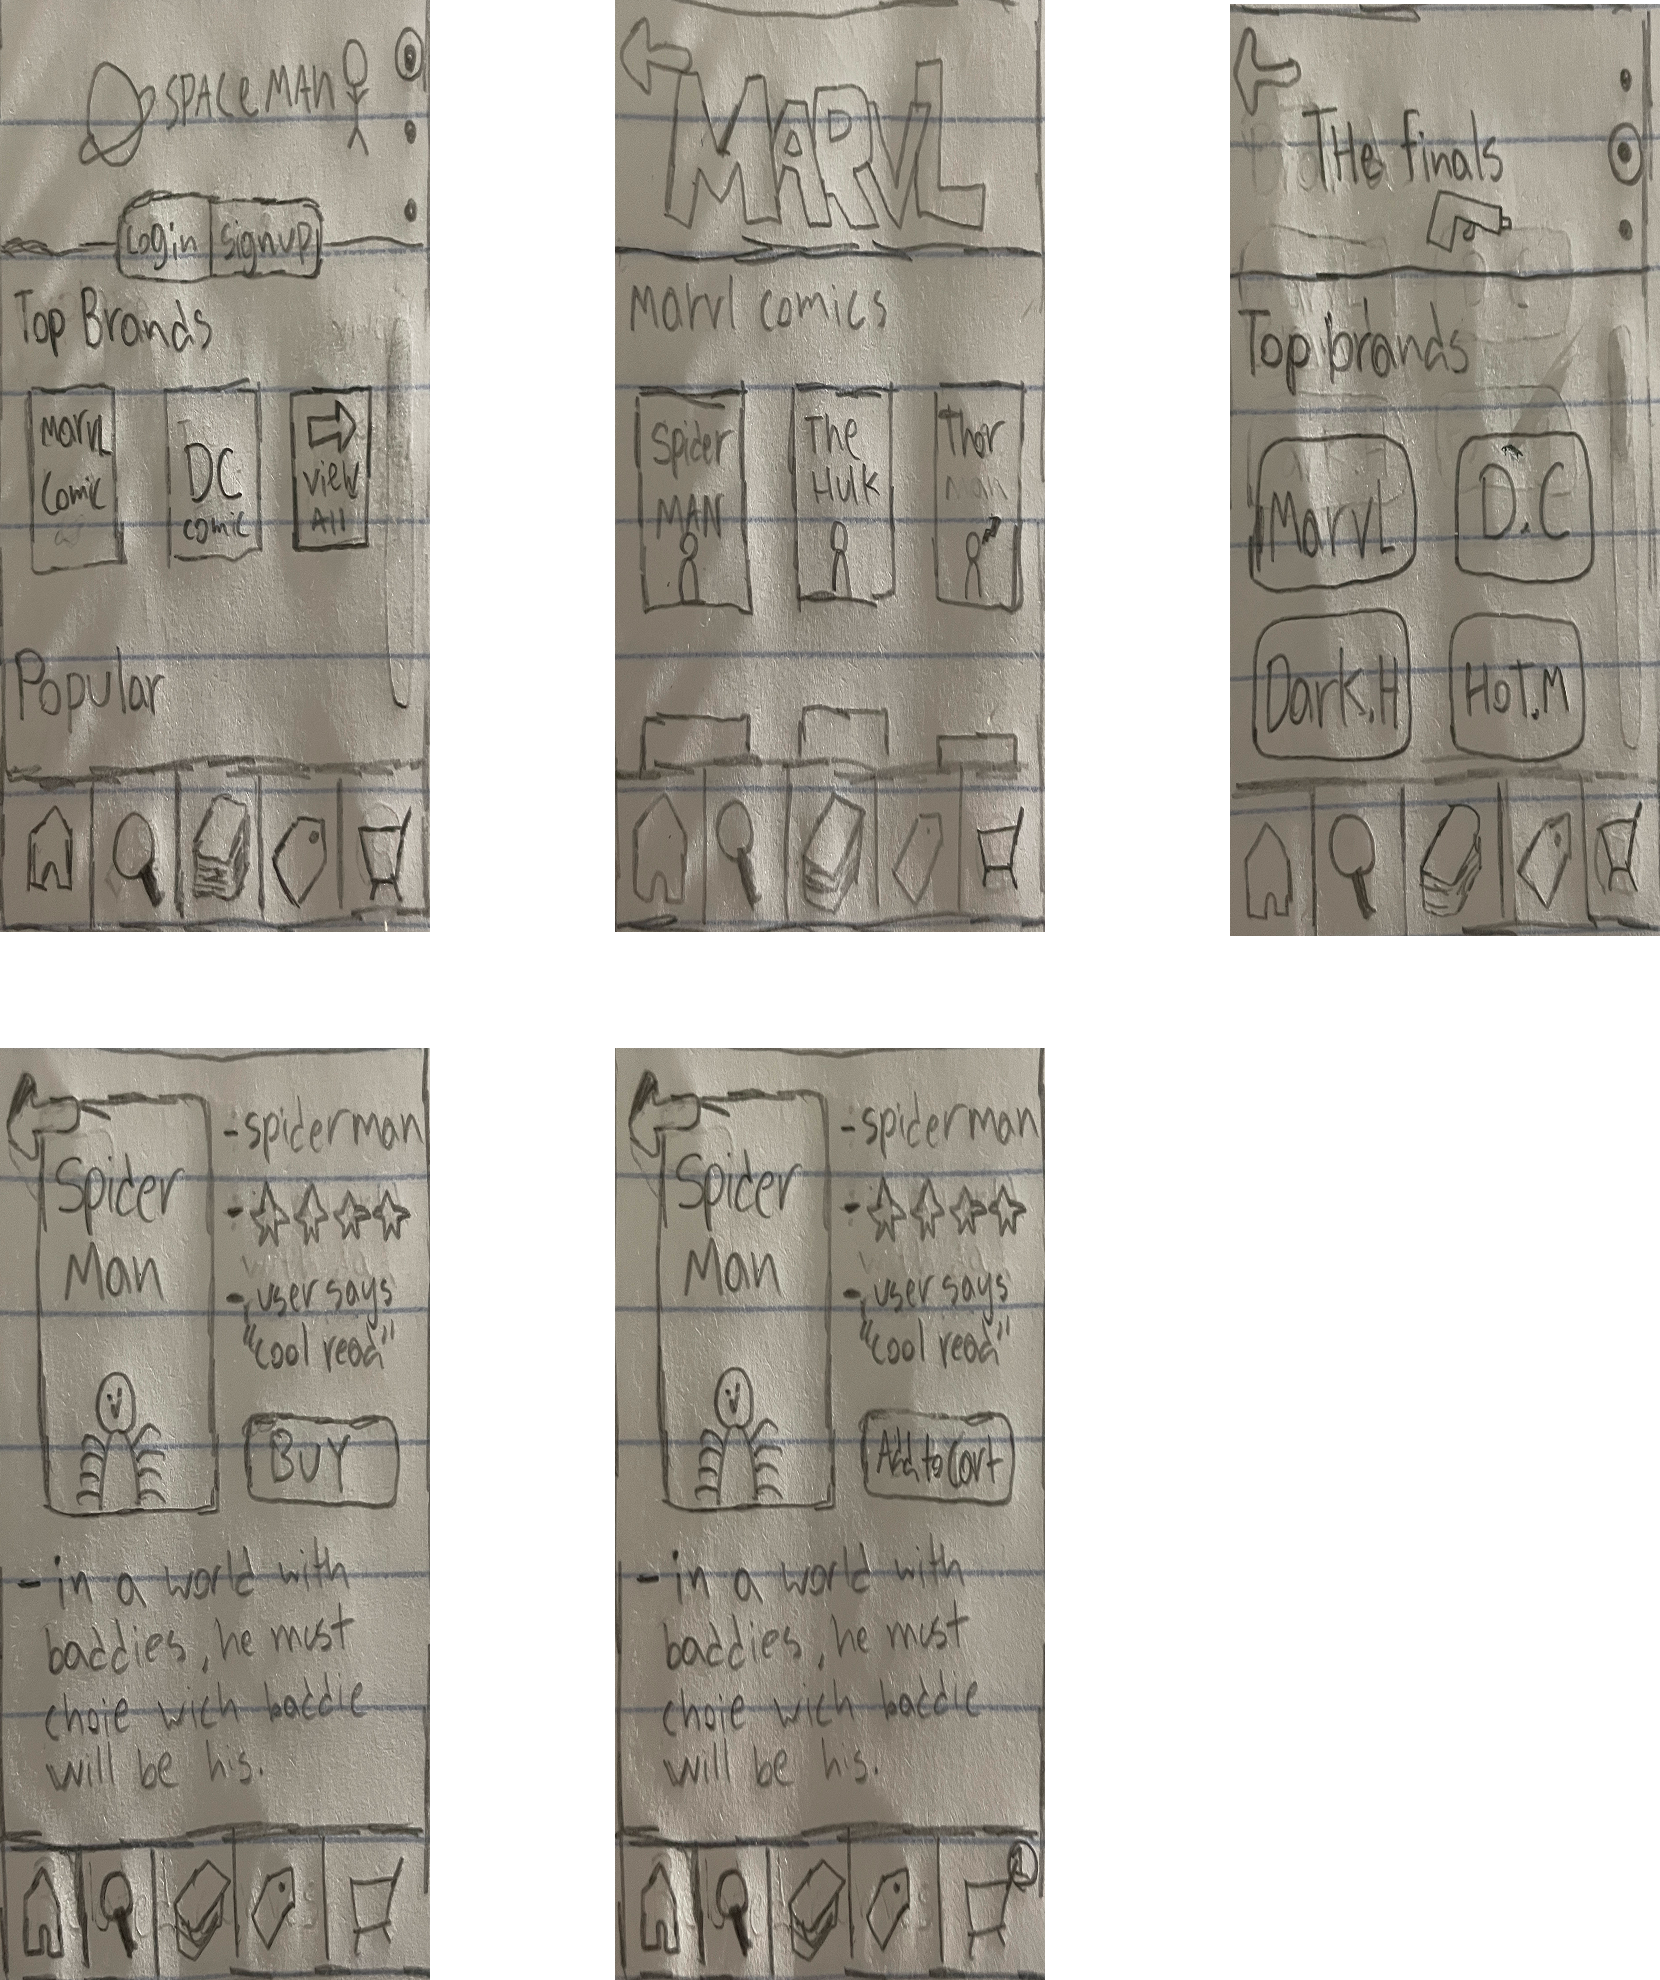 SPACE MAN
Login signup
Top Brands
MarvL
Comic
DC
comic
view
All
Popular
MARVL
Marvl comics
Spider
MAN
The
Hulk
Thor
man
THe finals
Top brands
MarvL
D.C
Dark.H
HoT.M
Spider
Man
- spiderman
- user says
"cool read"
BUY
- in a world with
baddies, he must
choie wich baddie
will be his.
Spider
Man
- spiderman
- user says
"cool read"
Add to Cart
- in a world with
baddies, he must
choie wich baddie
will be his.
1